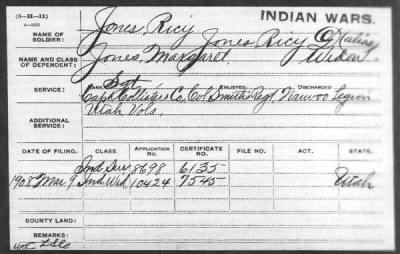 (3-H-11)
INDIAN WARS.
6-3353
NAME OF SOLDIER: Jones, Ricy
Jones Ricy O (alias)
NAME AND CLASS OF DEPENDENT: Jones, Margaret. Widow.
SERVICE: RANK Sgt ENLISTED DISCHARGED
Capt Collister Co, Col Smith's Regt, Nauvoo Legion
Utah Vols.
ADDITIONAL SERVICE:
DATE OF FILING. CLASS. APPLICATION NO. CERTIFICATE NO. FILE NO. ACT. STATE.
Ind Sur 8698 6135
1908 Mar. 9 Ind. Wid 10424 7545 Utah
COUNTY LAND:
REMARKS: